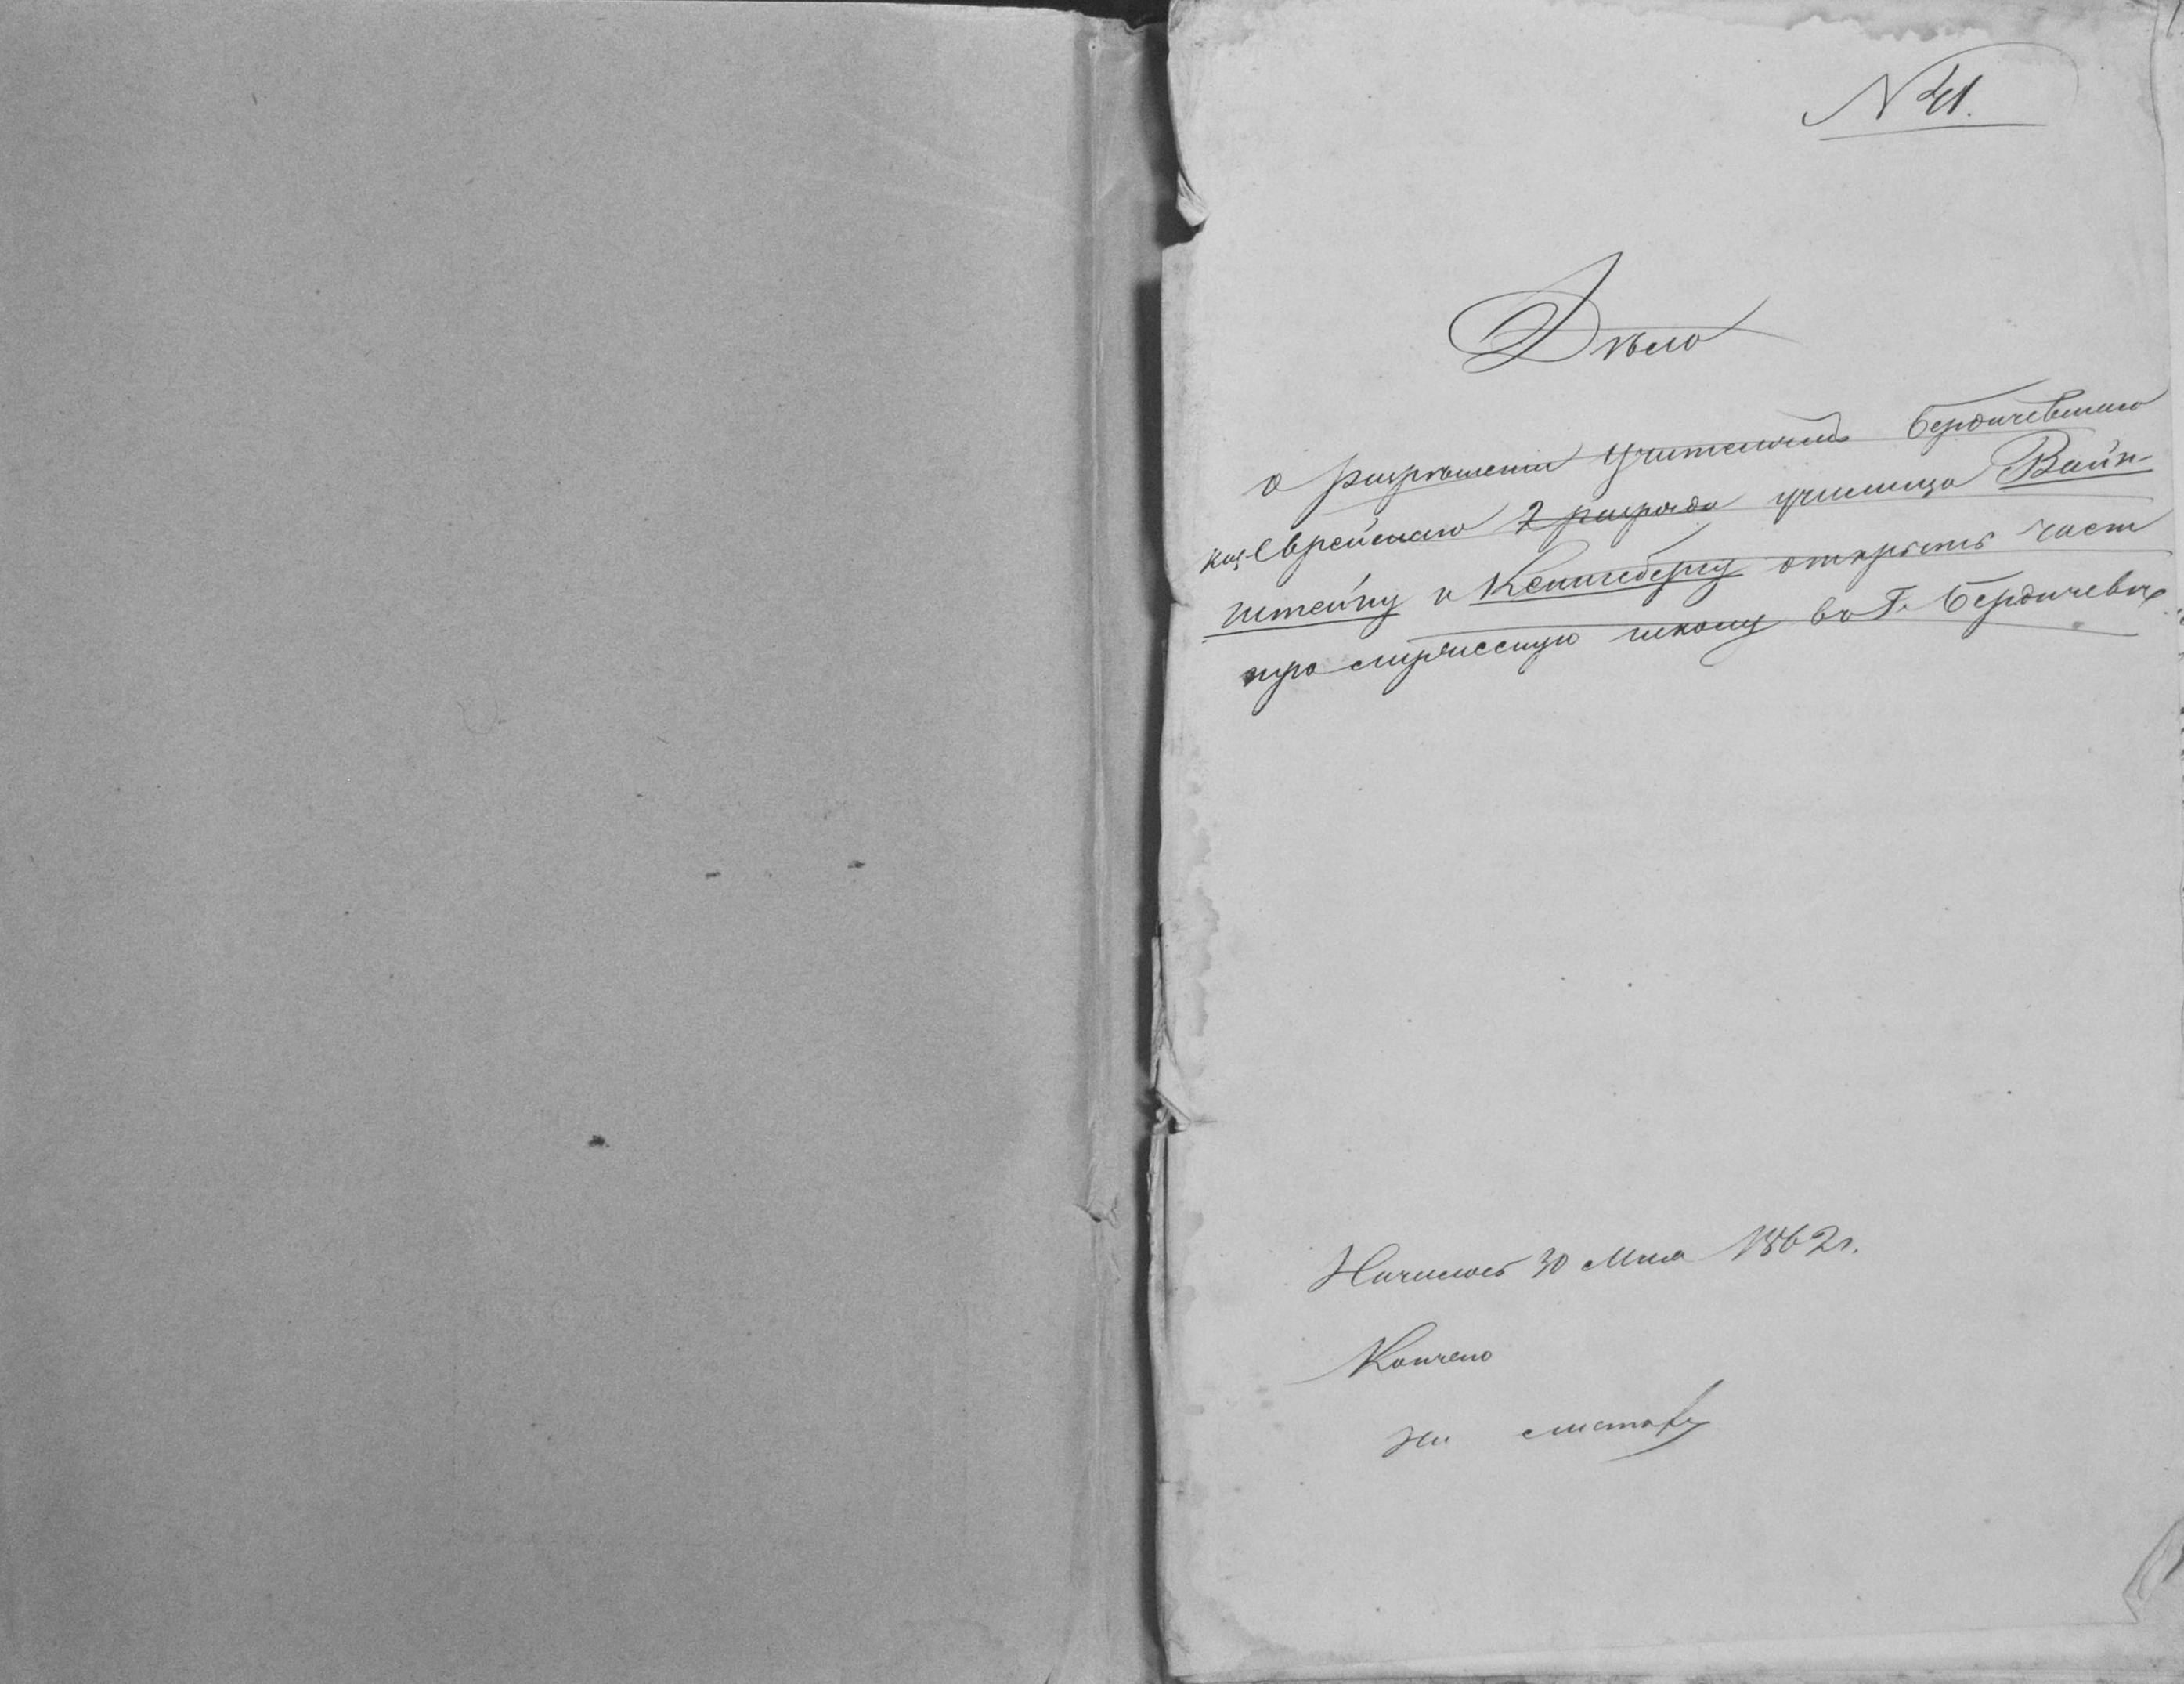 N 41.
Дѣло
о разрѣшеніи учителямъ Бердичевскаго
каз. Еврейскаго 2 разряда училища Вайн-
штейну и Кенигсбергу открыть част
ную школу въ г. Бердичевѣ
Началось 30 Мая 1862 г.
Кончено
На листахъ